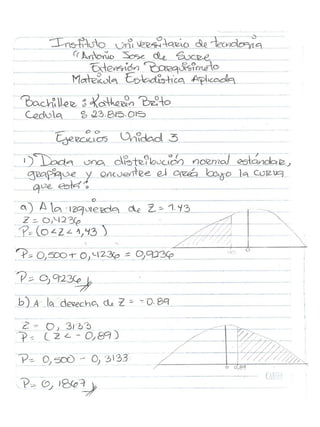 Instituto universitario de tecnología
"Antonio Jose de Sucre
Extensión Barquisimeto
Matericula Estadistica Aplicada
Bachiller : Katherin Brito
Cedula 23.815.015
Ejercicios Unidad 3
1) Dada una distribución normal estándar,
grafique y encuentre el area bajo la curva
que esta :
a) A la izquierda de Z = 1.43
Z = 0,4236
P= (0<Z<1,43)
P= 0,500 + 0,4236 = 0,9236
P= 0,9236
b) A la derecha de Z = -0.89
Z = 0,3133
P= (Z < -0,89)
P= 0,500 - 0,3133
0 0,89
P= 0,1867